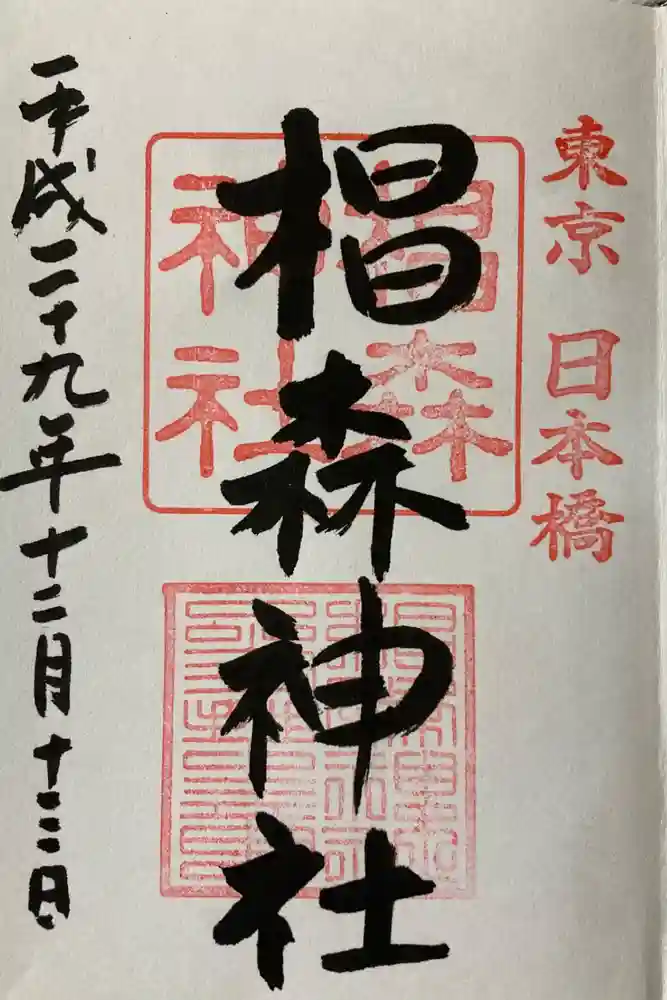 東京 日本橋
椙森神社
椙森
神社
平成二十九年十二月十三日